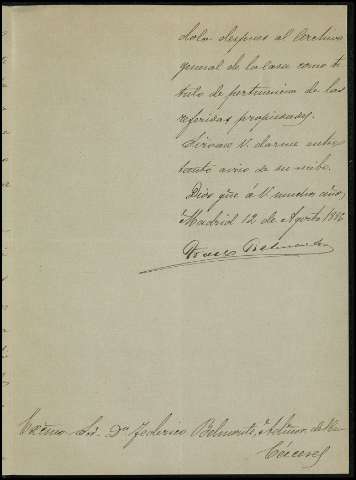 dola despues al Archivo
general de la casa como ti
tulo de pertinencia de las
referidas propiedades.
Sirvase V. darme entre
tanto aviso de su recibo.
Dios gue á V. muchos años,
Madrid 12 de Agosto
Sr. Dn Federico Belmonte,
Cáceres